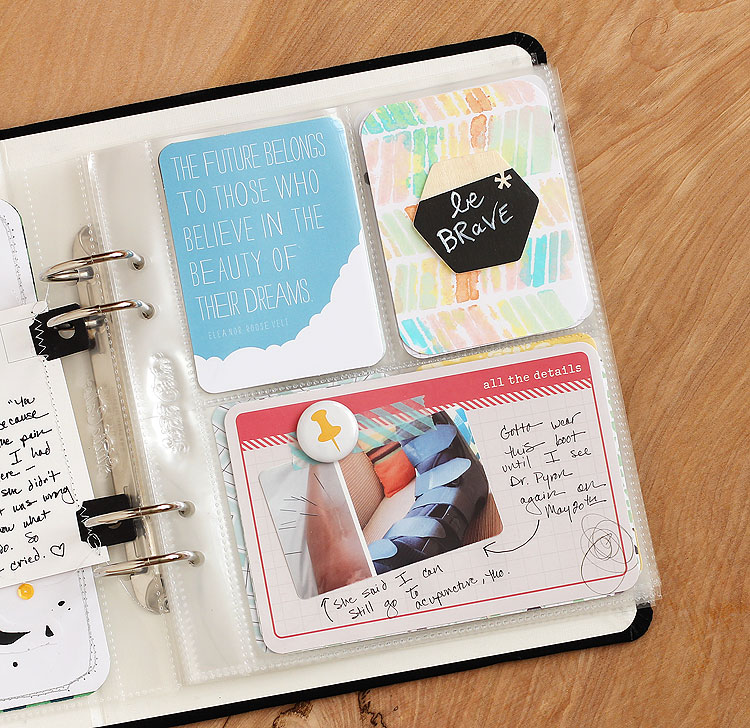 "You
because
the pain
I had
here -
she didn't
it was wrong
know what
do. So
I cried. ♡
THE FUTURE BELONGS
TO THOSE WHO
BELIEVE IN THE
BEAUTY OF
THEIR DREAMS.
ELEANOR ROOSEVELT
be
BRAVE
*
all the details
Gotta wear
this boot
until I see
Dr. Pyron
again on
May 20th
↑ She said I can
still go to acupunctive, tho.